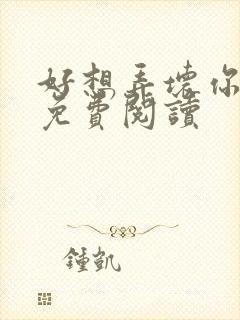 好想弄壞你
免費閱讀
鍾凱